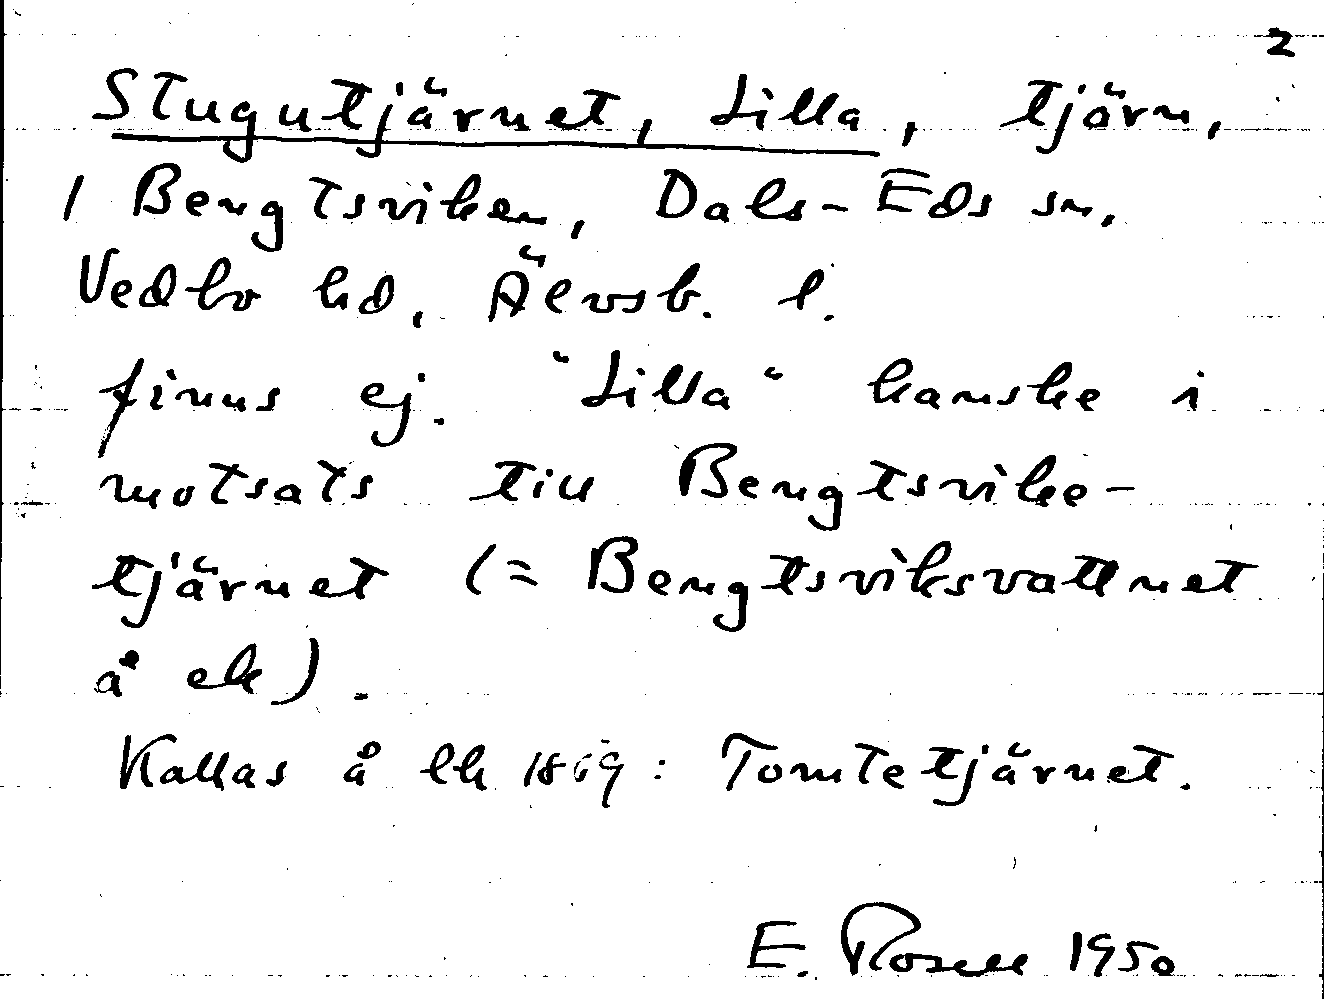 2
Stugutjärnet, Lilla, tjärn,
1 Bengtsviken, Dals-Eds sn,
Vedbo hd, Älvsb. l.
finns ej. "Lilla" kanske i
motsats till Bengtsvike-
tjärnet (= Bengtsviksvattnet
å ek).
Kallas å lk 1869: Tomtetjärnet.
E. Rosell 1950